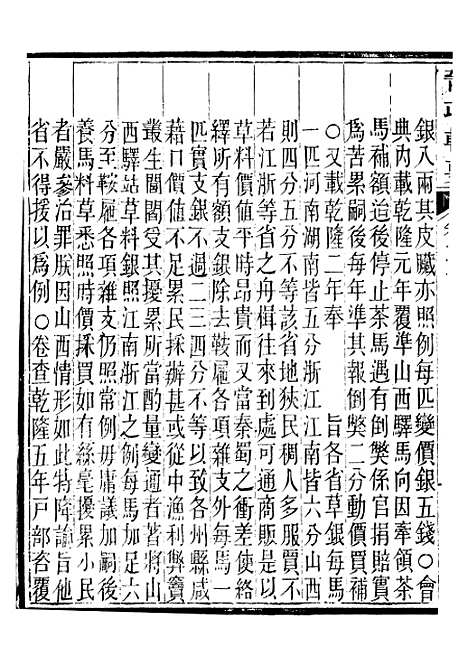 銀八兩其皮臟亦照例每匹變價銀五錢〇會
典內載乾隆元年覆準山西驛馬向因牽領茶
馬補額迨後停止茶馬遇有倒獘係官捐賠實
爲苦累嗣後每年準其報倒獘二分動價買補
〇又載乾隆二年奉 旨各省草銀每馬
一匹河南湖南皆五分浙江江南皆六分山西
則四分五分不等該省地狹民稠人多服賈不
若江浙等省之舟楫往來到處可通商販是以
草料價値平時昂貴而又當秦蜀之衝差使絡
繹所有額支銀除去鞍屜各項雜支外每馬一
匹實支銀不過二三四分不等以致各州縣咸
藉口價値不足累民採辦甚或從中漁利獘竇
叢生閭閻甚其擾累所當酌量變通者著將山
西驛站草料銀照江南浙江之例每馬加足六
分至鞍屜各項雜支仍照常例毋庸議加嗣後
養馬料草悉照時價採買如有絲毫擾累小民
者嚴參治罪朕因山西情形如此特降諭旨他
省不得援以爲例〇卷查乾隆五年戶部咨覆